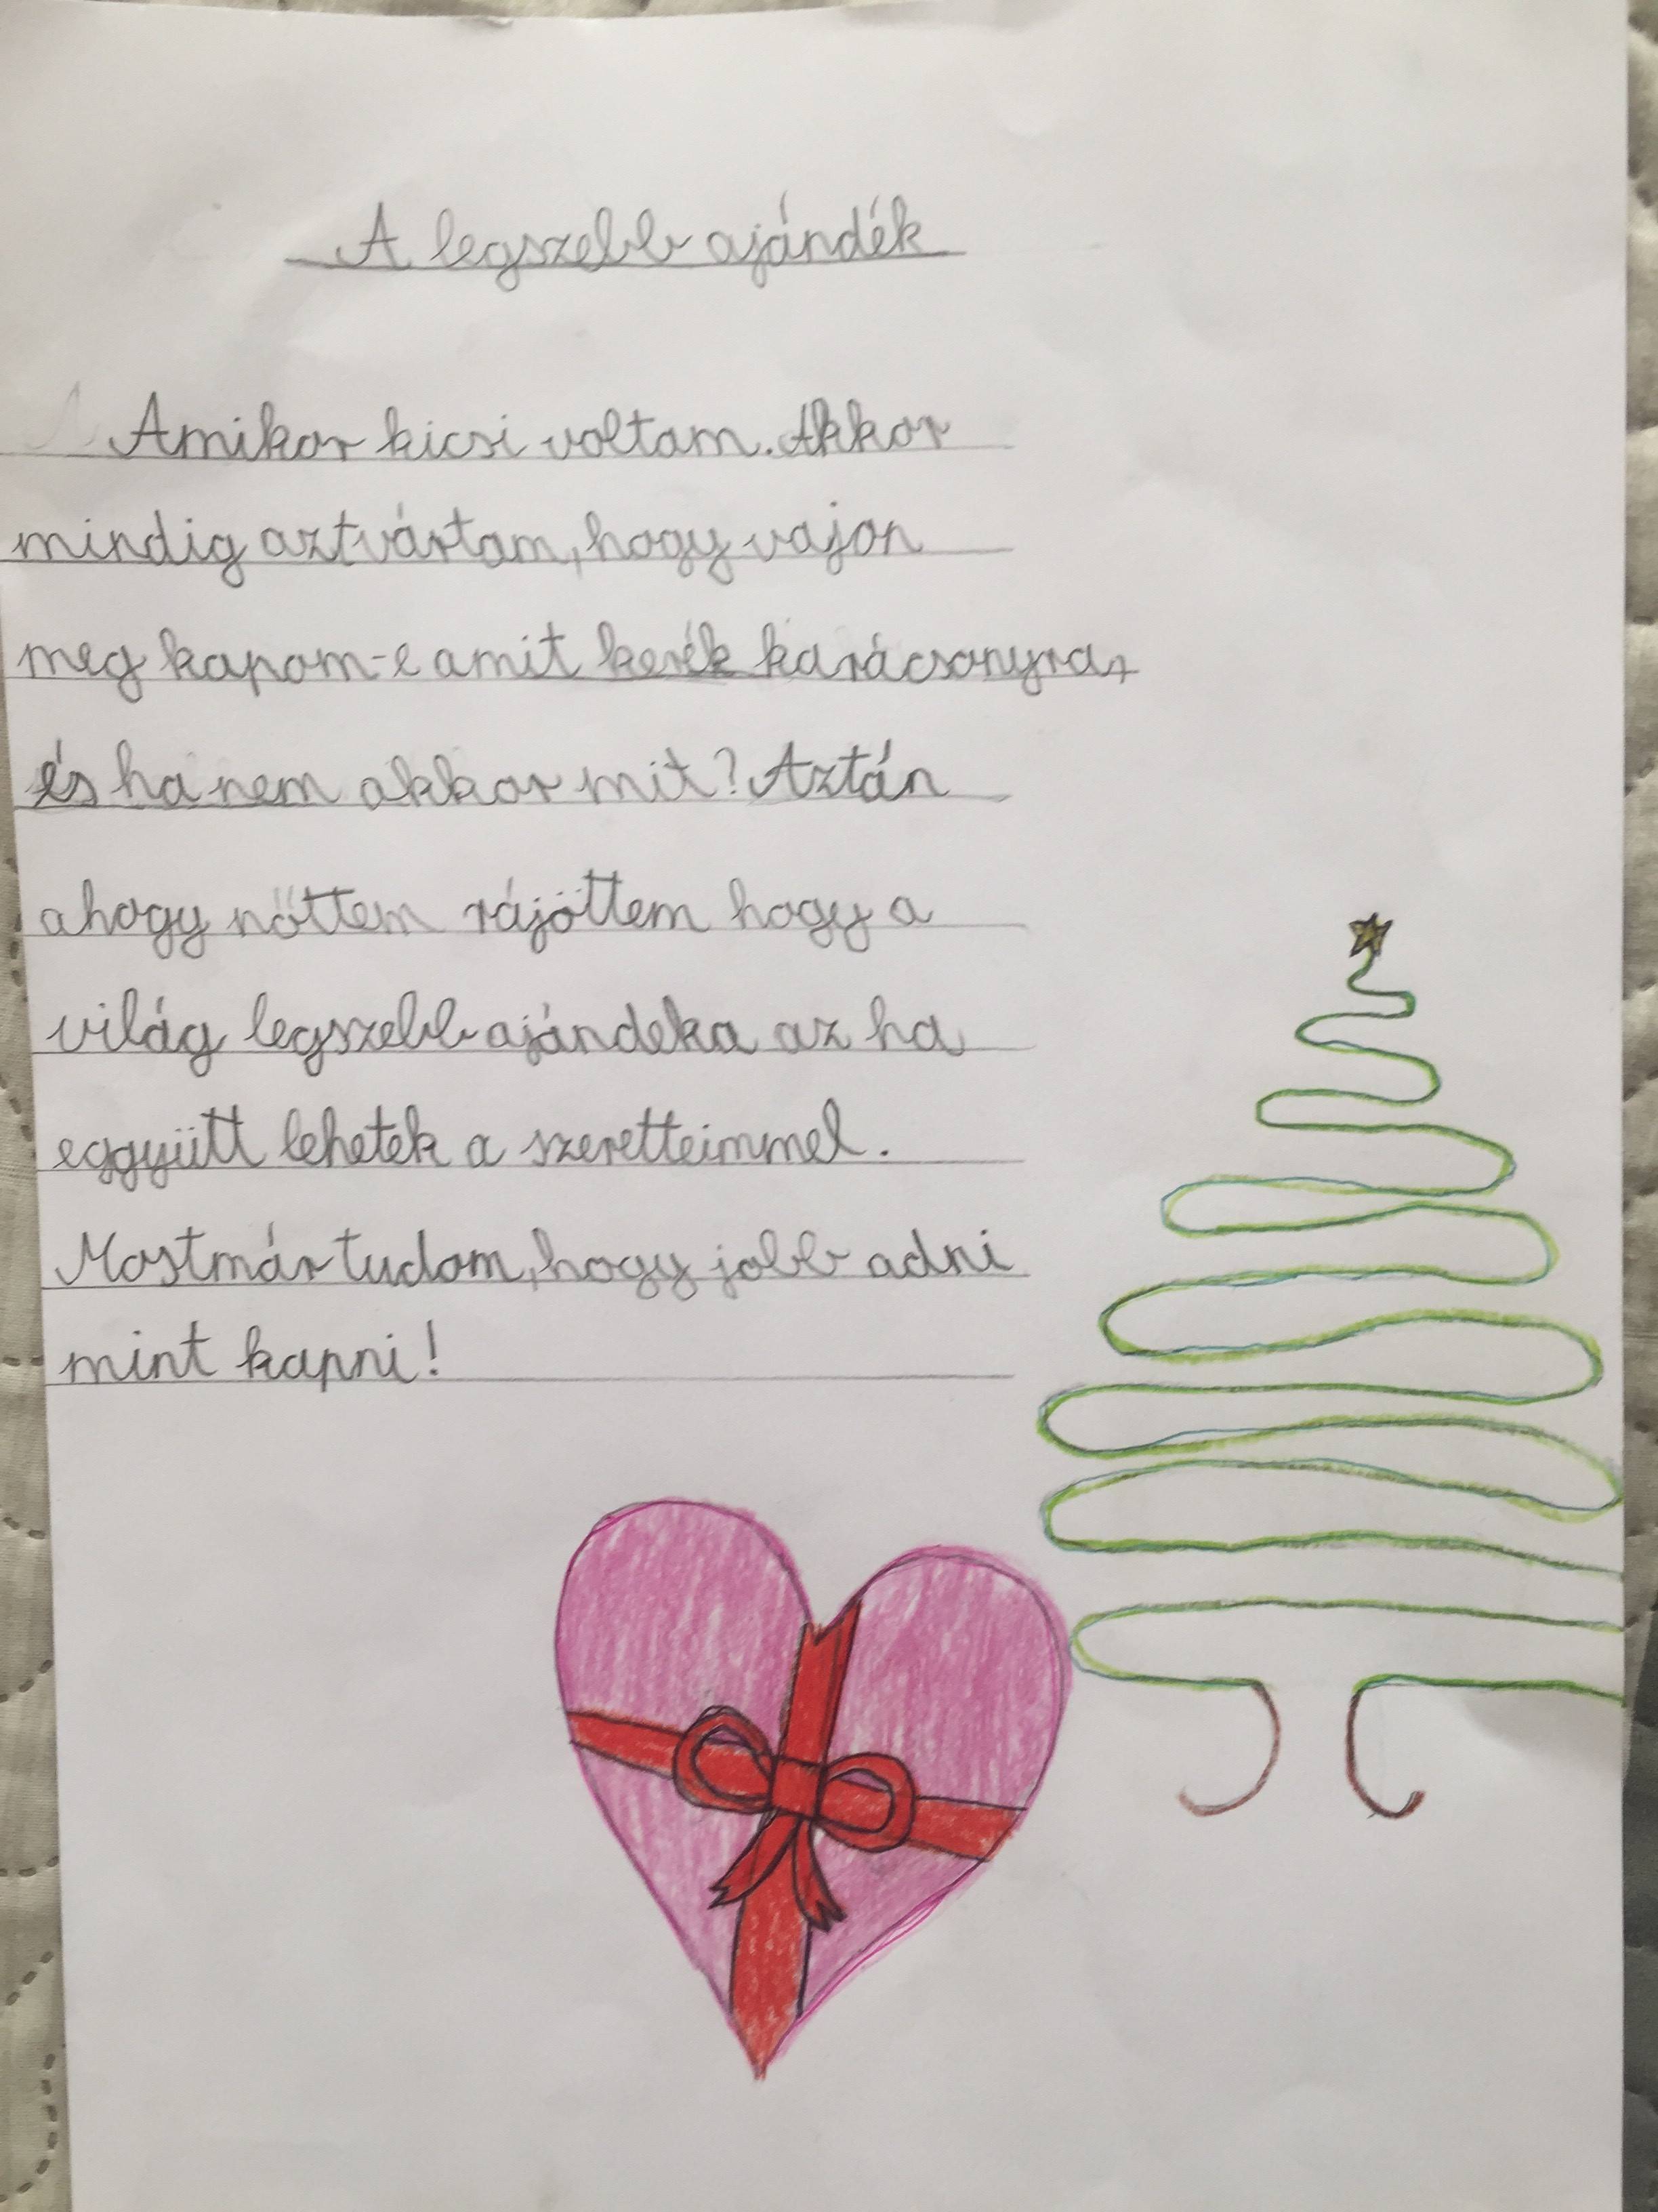 A legszebb ajándék
Amikor kicsi voltam. Akkor
mindig aztvártam, hogy vajon
meg kapom-e amit kerék karácsonyra,
és ha nem akkor mit? Aztán
ahogy nőttem rájöttem hogy a
világ legszebb ajándeka az ha
eggyütt lehetek a szeretteimmel.
Mostmár tudom, hogy jobb adni
mint kapni!